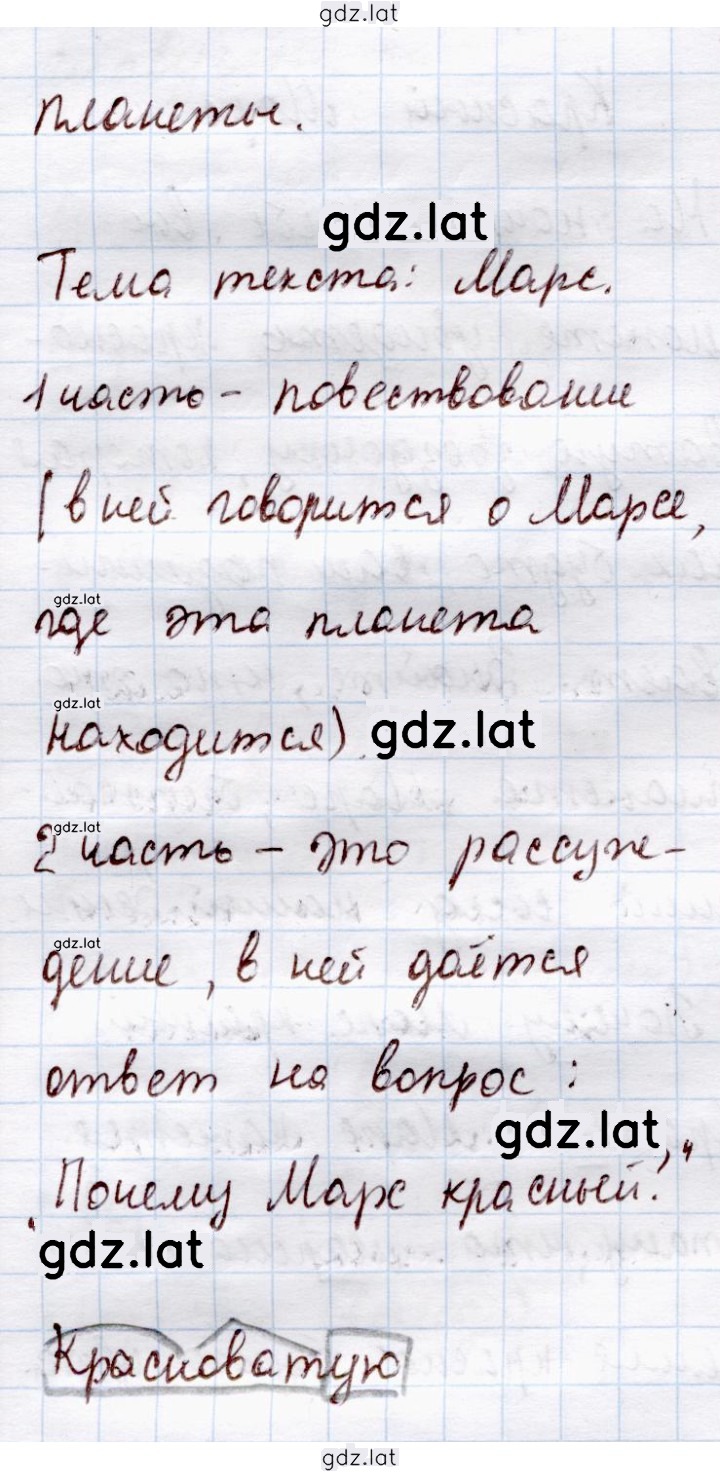 gdz.lat
планеты.
gdz.lat
Тема текста: Марс.
1 часть - повествование
(в ней говорится о Марсе,
gdz.lat
где эта планета
gdz.lat
находится). gdz.lat
gdz.lat
2 часть - это рассуж-
gdz.lat
дение, в ней даётся
ответ на вопрос:
gdz.lat
„Почему Марс красный?"
gdz.lat
Красноватую
gdz.lat